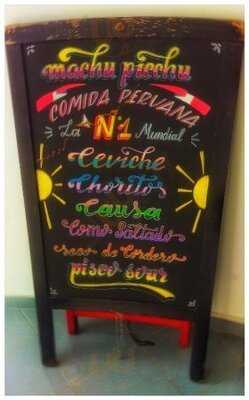 machu picchu
COMIDA PERUANA
La N1 Mundial
Ceviche
Choritos
Causa
Lomo Saltado
seco de Cordero
pisco sour